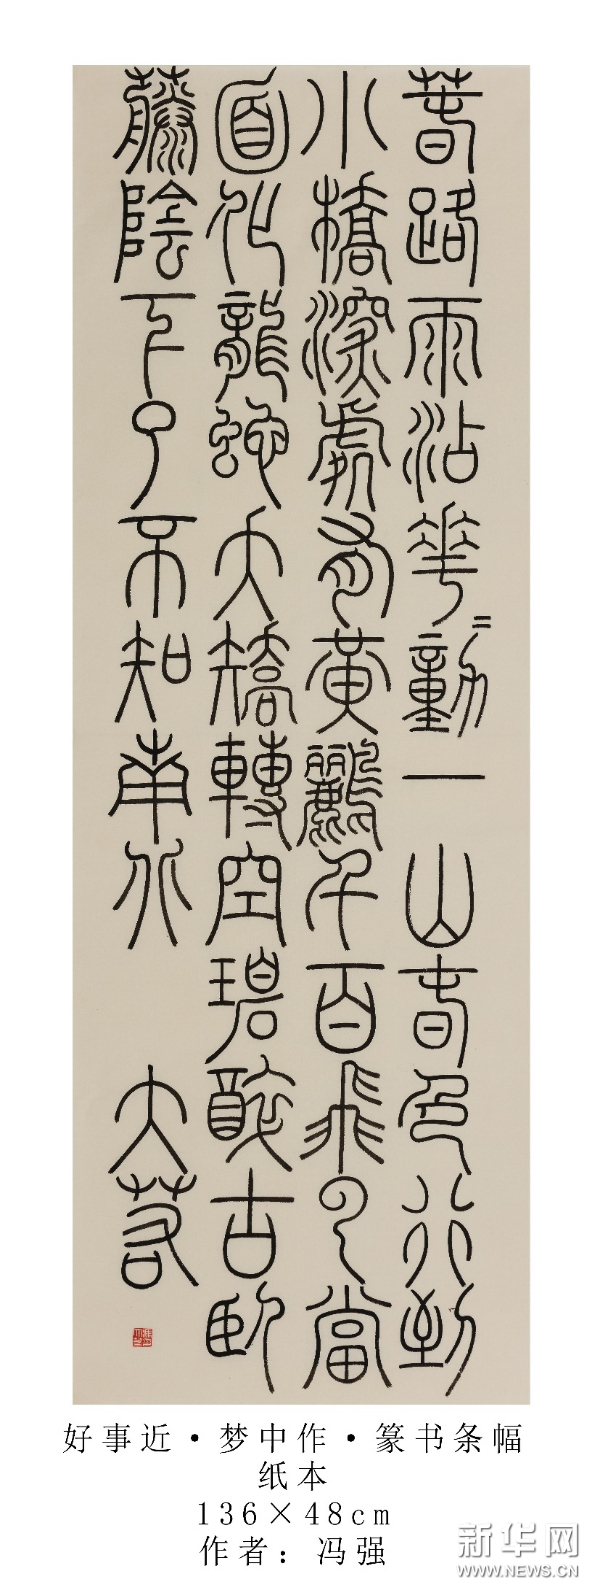 春路雨沾花〻動一山春色行到
小橋深處有黃鸝千百飛雲當
面化龍蛇夭矯轉空碧醉古臥
藤陰下了不知南北
好事近·梦中作·篆书条幅
纸本
136×48cm
作者：冯强
新华网
WWW.NEWS.CN